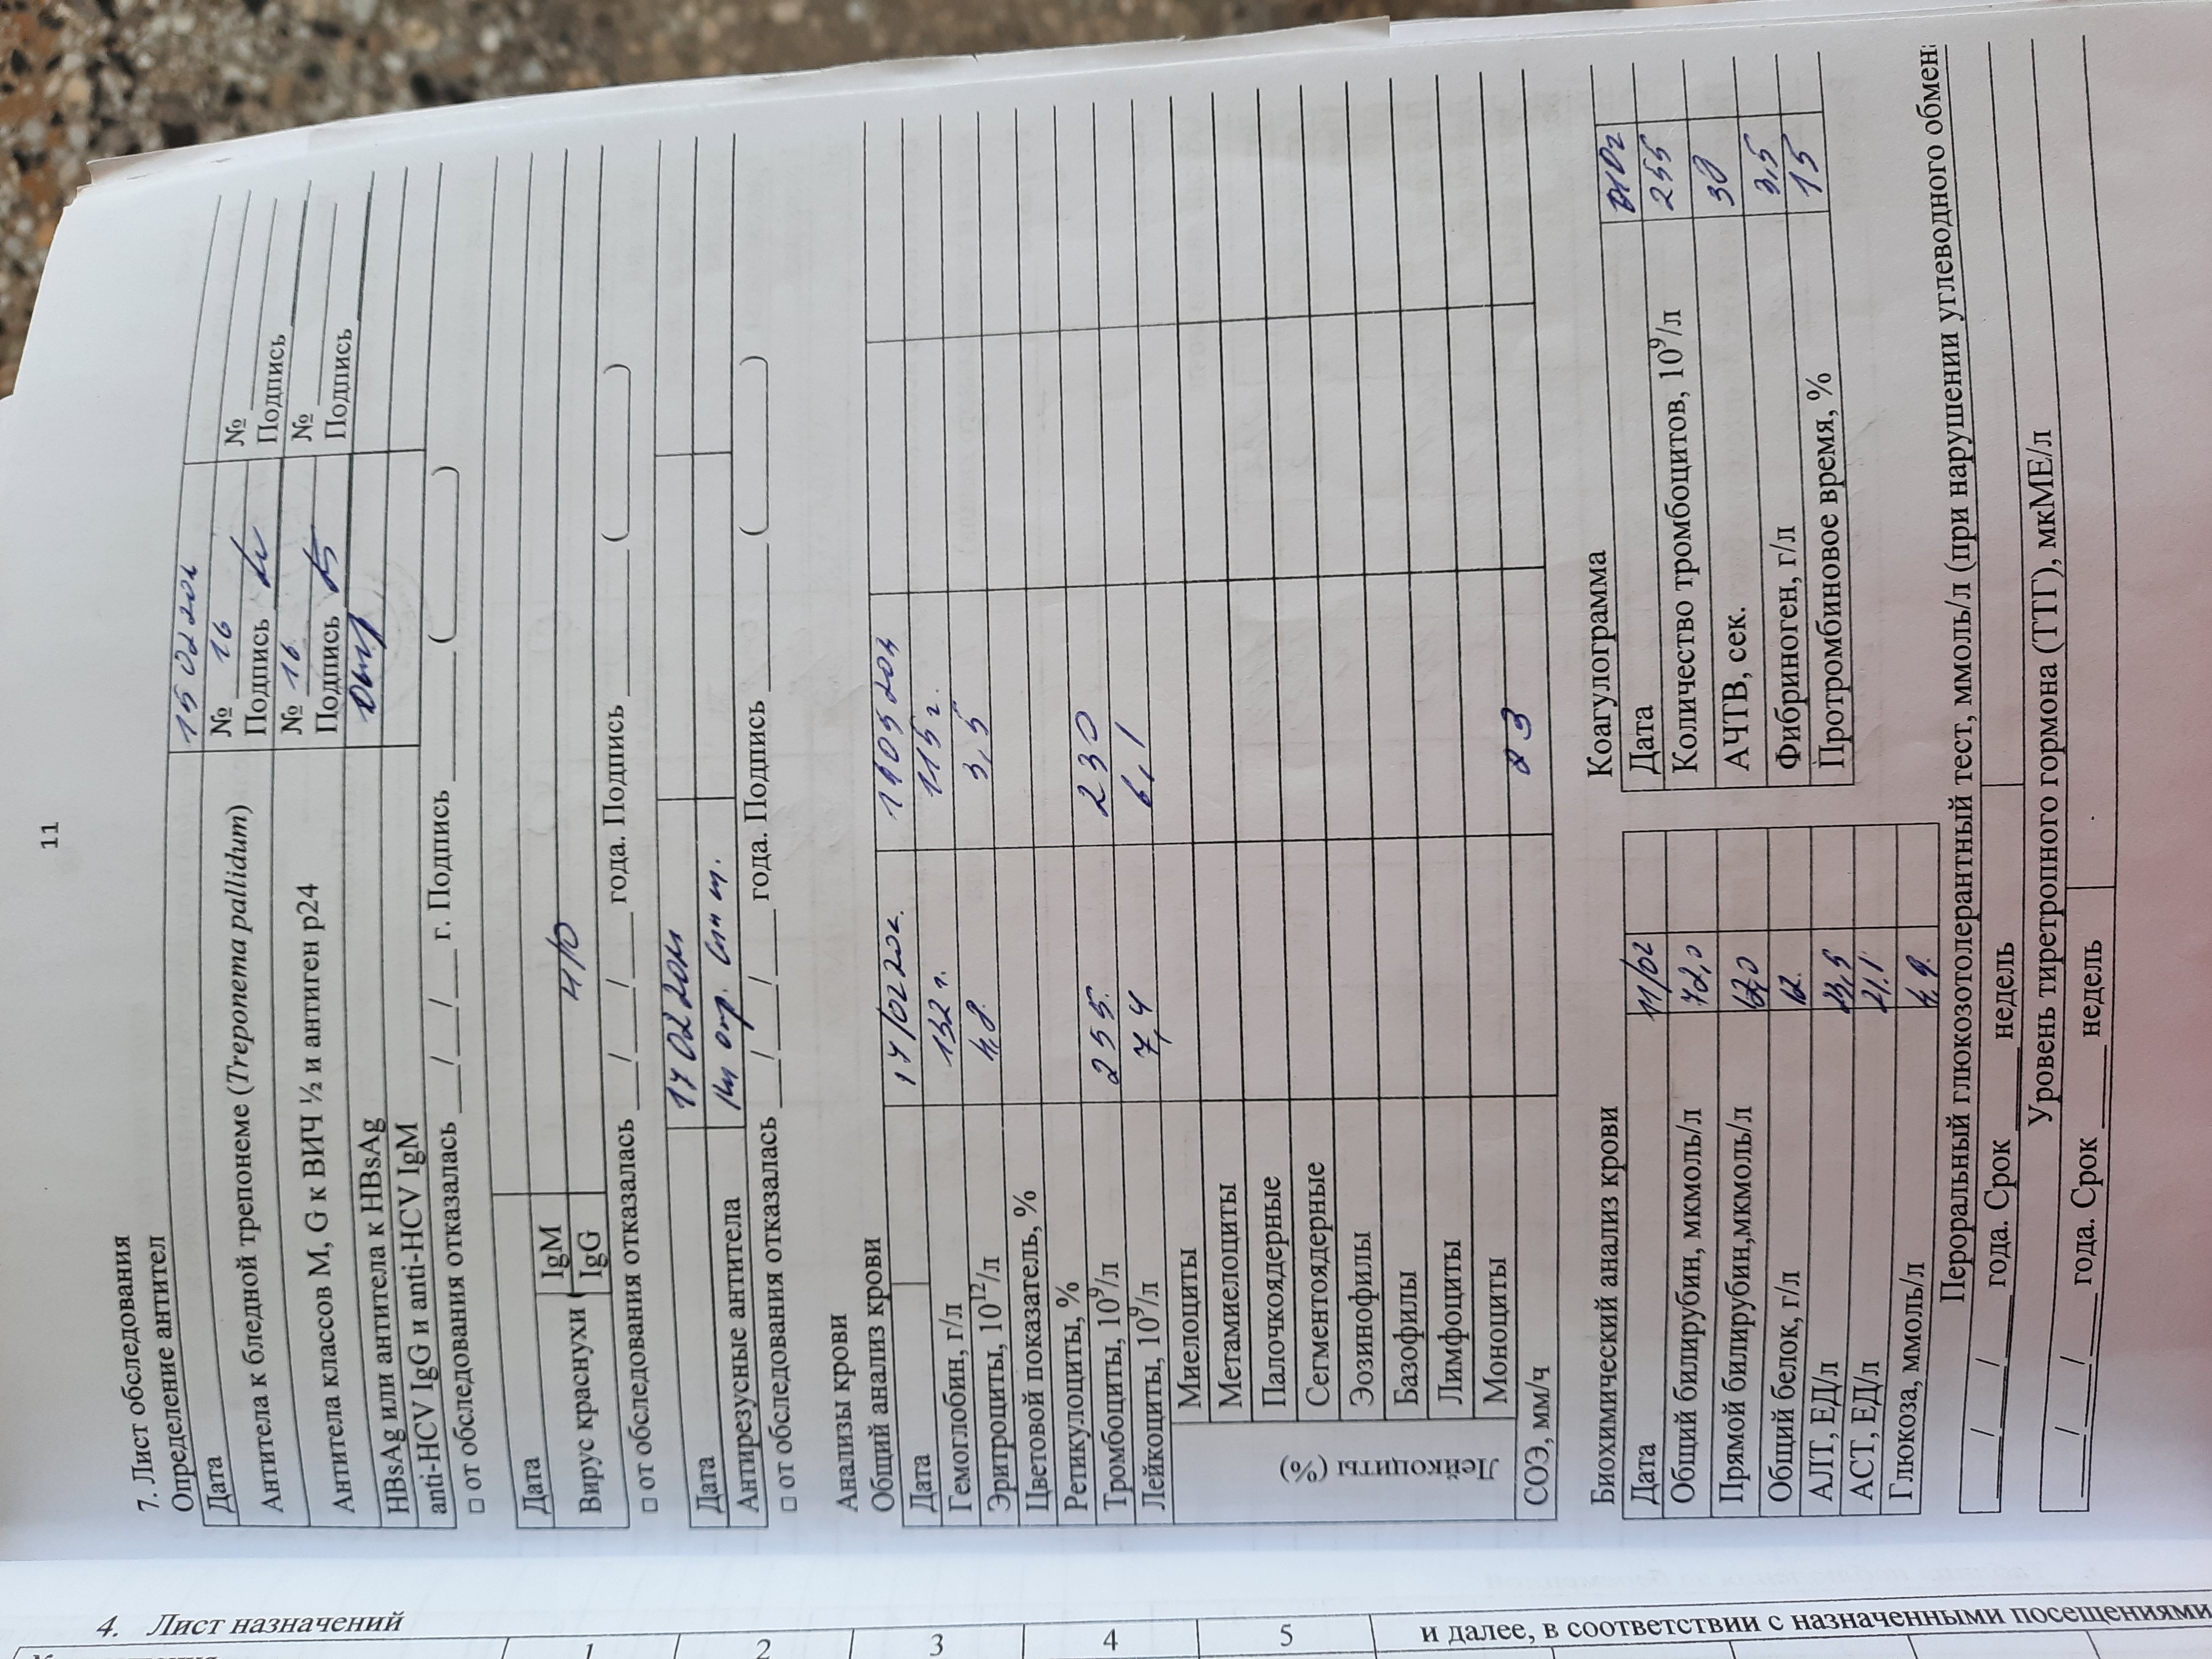 11
7. Лист обследования
Определение антител
Дата 15 02 202
Антитела к бледной трепонеме (Treponema pallidum) № 16 №
Подпись Подпись
Антитела классов M, G к ВИЧ ½ и антиген р24 № 16 №
Подпись Подпись
HBsAg или антитела к HBsAg
anti-HCV IgG и anti-HCV IgM
□ от обследования отказалась ___/___/___ г. Подпись ______ (______)
Дата
Вирус краснухи IgM
IgG
□ от обследования отказалась ___/___/___ года. Подпись ______ (______)
Дата 17 02 202
Антирезусные антитела
□ от обследования отказалась ___/___/___ года. Подпись ______ (______)
Анализы крови
Общий анализ крови
Дата 17/02 202 1905 202
Гемоглобин, г/л 132 г. 115 г.
Эритроциты, 10¹²/л 4,8 3,5
Цветовой показатель, %
Ретикулоциты, %
Тромбоциты, 10⁹/л 255 230
Лейкоциты, 10⁹/л 7,4 6,1
Лейкоциты (%)
Миелоциты
Метамиелоциты
Палочкоядерные
Сегментоядерные
Эозинофилы
Базофилы
Лимфоциты
Моноциты
СОЭ, мм/ч
Биохимический анализ крови
Дата /02
Общий билирубин, мкмоль/л 72,0
Прямой билирубин,мкмоль/л
Общий белок, г/л 12.
АЛТ, ЕД/л
АСТ, ЕД/л 21,1
Глюкоза, ммоль/л 4,9.
Коагулограмма
Дата
Количество тромбоцитов, 10⁹/л 255
АЧТВ, сек. 38
Фибриноген, г/л 3,5
Протромбиновое время, % 15
Пероральный глюкозотолерантный тест, ммоль/л (при нарушении углеводного обмен
___/___/___ года. Срок ______ недель
Уровень тиретропного гормона (ТТГ), мкМЕ/л
___/___/___ года. Срок ______ недель
4. Лист назначений
1 2 3 4 5 и далее, в соответствии с назначенными посещениями